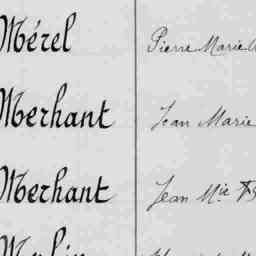 Mérel Pierre Marie
Merhant Jean Marie
Merhant Jean Mie